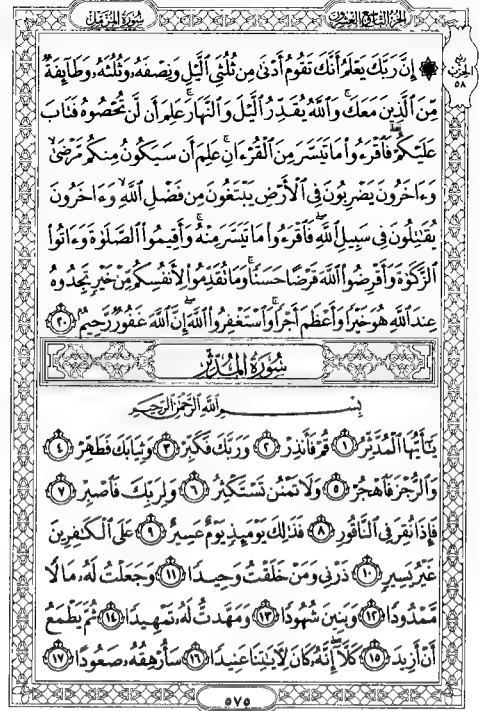 سُورَةُ المُزَّمِّل
الجُزْءُ التَّاسِعُ وَالعِشْرُونَ
رُبْعُ
الحِزْبِ
٥٨
۞ إِنَّ رَبَّكَ يَعْلَمُ أَنَّكَ تَقُومُ أَدْنَىٰ مِن ثُلُثَىِ ٱلَّيْلِ وَنِصْفَهُۥ وَثُلُثَهُۥ وَطَآئِفَةٌ
مِّنَ ٱلَّذِينَ مَعَكَ ۚ وَٱللَّهُ يُقَدِّرُ ٱلَّيْلَ وَٱلنَّهَارَ ۚ عَلِمَ أَن لَّن تُحْصُوهُ فَتَابَ
عَلَيْكُمْ ۖ فَٱقْرَءُوا۟ مَا تَيَسَّرَ مِنَ ٱلْقُرْءَانِ ۚ عَلِمَ أَن سَيَكُونُ مِنكُم مَّرْضَىٰ ۙ
وَءَاخَرُونَ يَضْرِبُونَ فِى ٱلْأَرْضِ يَبْتَغُونَ مِن فَضْلِ ٱللَّهِ ۙ وَءَاخَرُونَ
يُقَـٰتِلُونَ فِى سَبِيلِ ٱللَّهِ ۖ فَٱقْرَءُوا۟ مَا تَيَسَّرَ مِنْهُ ۚ وَأَقِيمُوا۟ ٱلصَّلَوٰةَ وَءَاتُوا۟
ٱلزَّكَوٰةَ وَأَقْرِضُوا۟ ٱللَّهَ قَرْضًا حَسَنًا ۚ وَمَا تُقَدِّمُوا۟ لِأَنفُسِكُم مِّنْ خَيْرٍ تَجِدُوهُ
عِندَ ٱللَّهِ هُوَ خَيْرًا وَأَعْظَمَ أَجْرًا ۚ وَٱسْتَغْفِرُوا۟ ٱللَّهَ ۖ إِنَّ ٱللَّهَ غَفُورٌ رَّحِيمٌۢ ٢٠
سُورَةُ المُدَّثِّرِ
بِسْمِ ٱللَّهِ ٱلرَّحْمَـٰنِ ٱلرَّحِيمِ
يَـٰٓأَيُّهَا ٱلْمُدَّثِّرُ ١ قُمْ فَأَنذِرْ ٢ وَرَبَّكَ فَكَبِّرْ ٣ وَثِيَابَكَ فَطَهِّرْ ٤
وَٱلرُّجْزَ فَٱهْجُرْ ٥ وَلَا تَمْنُن تَسْتَكْثِرُ ٦ وَلِرَبِّكَ فَٱصْبِرْ ٧
فَإِذَا نُقِرَ فِى ٱلنَّاقُورِ ٨ فَذَٰلِكَ يَوْمَئِذٍ يَوْمٌ عَسِيرٌ ٩ عَلَى ٱلْكَـٰفِرِينَ
غَيْرُ يَسِيرٍ ١٠ ذَرْنِى وَمَنْ خَلَقْتُ وَحِيدًا ١١ وَجَعَلْتُ لَهُۥ مَالًا
مَّمْدُودًا ١٢ وَبَنِينَ شُهُودًا ١٣ وَمَهَّدتُّ لَهُۥ تَمْهِيدًا ١٤ ثُمَّ يَطْمَعُ
أَنْ أَزِيدَ ١٥ كَلَّآ ۖ إِنَّهُۥ كَانَ لِـَٔايَـٰتِنَا عَنِيدًا ١٦ سَأُرْهِقُهُۥ صَعُودًا ١٧
٥٧٥